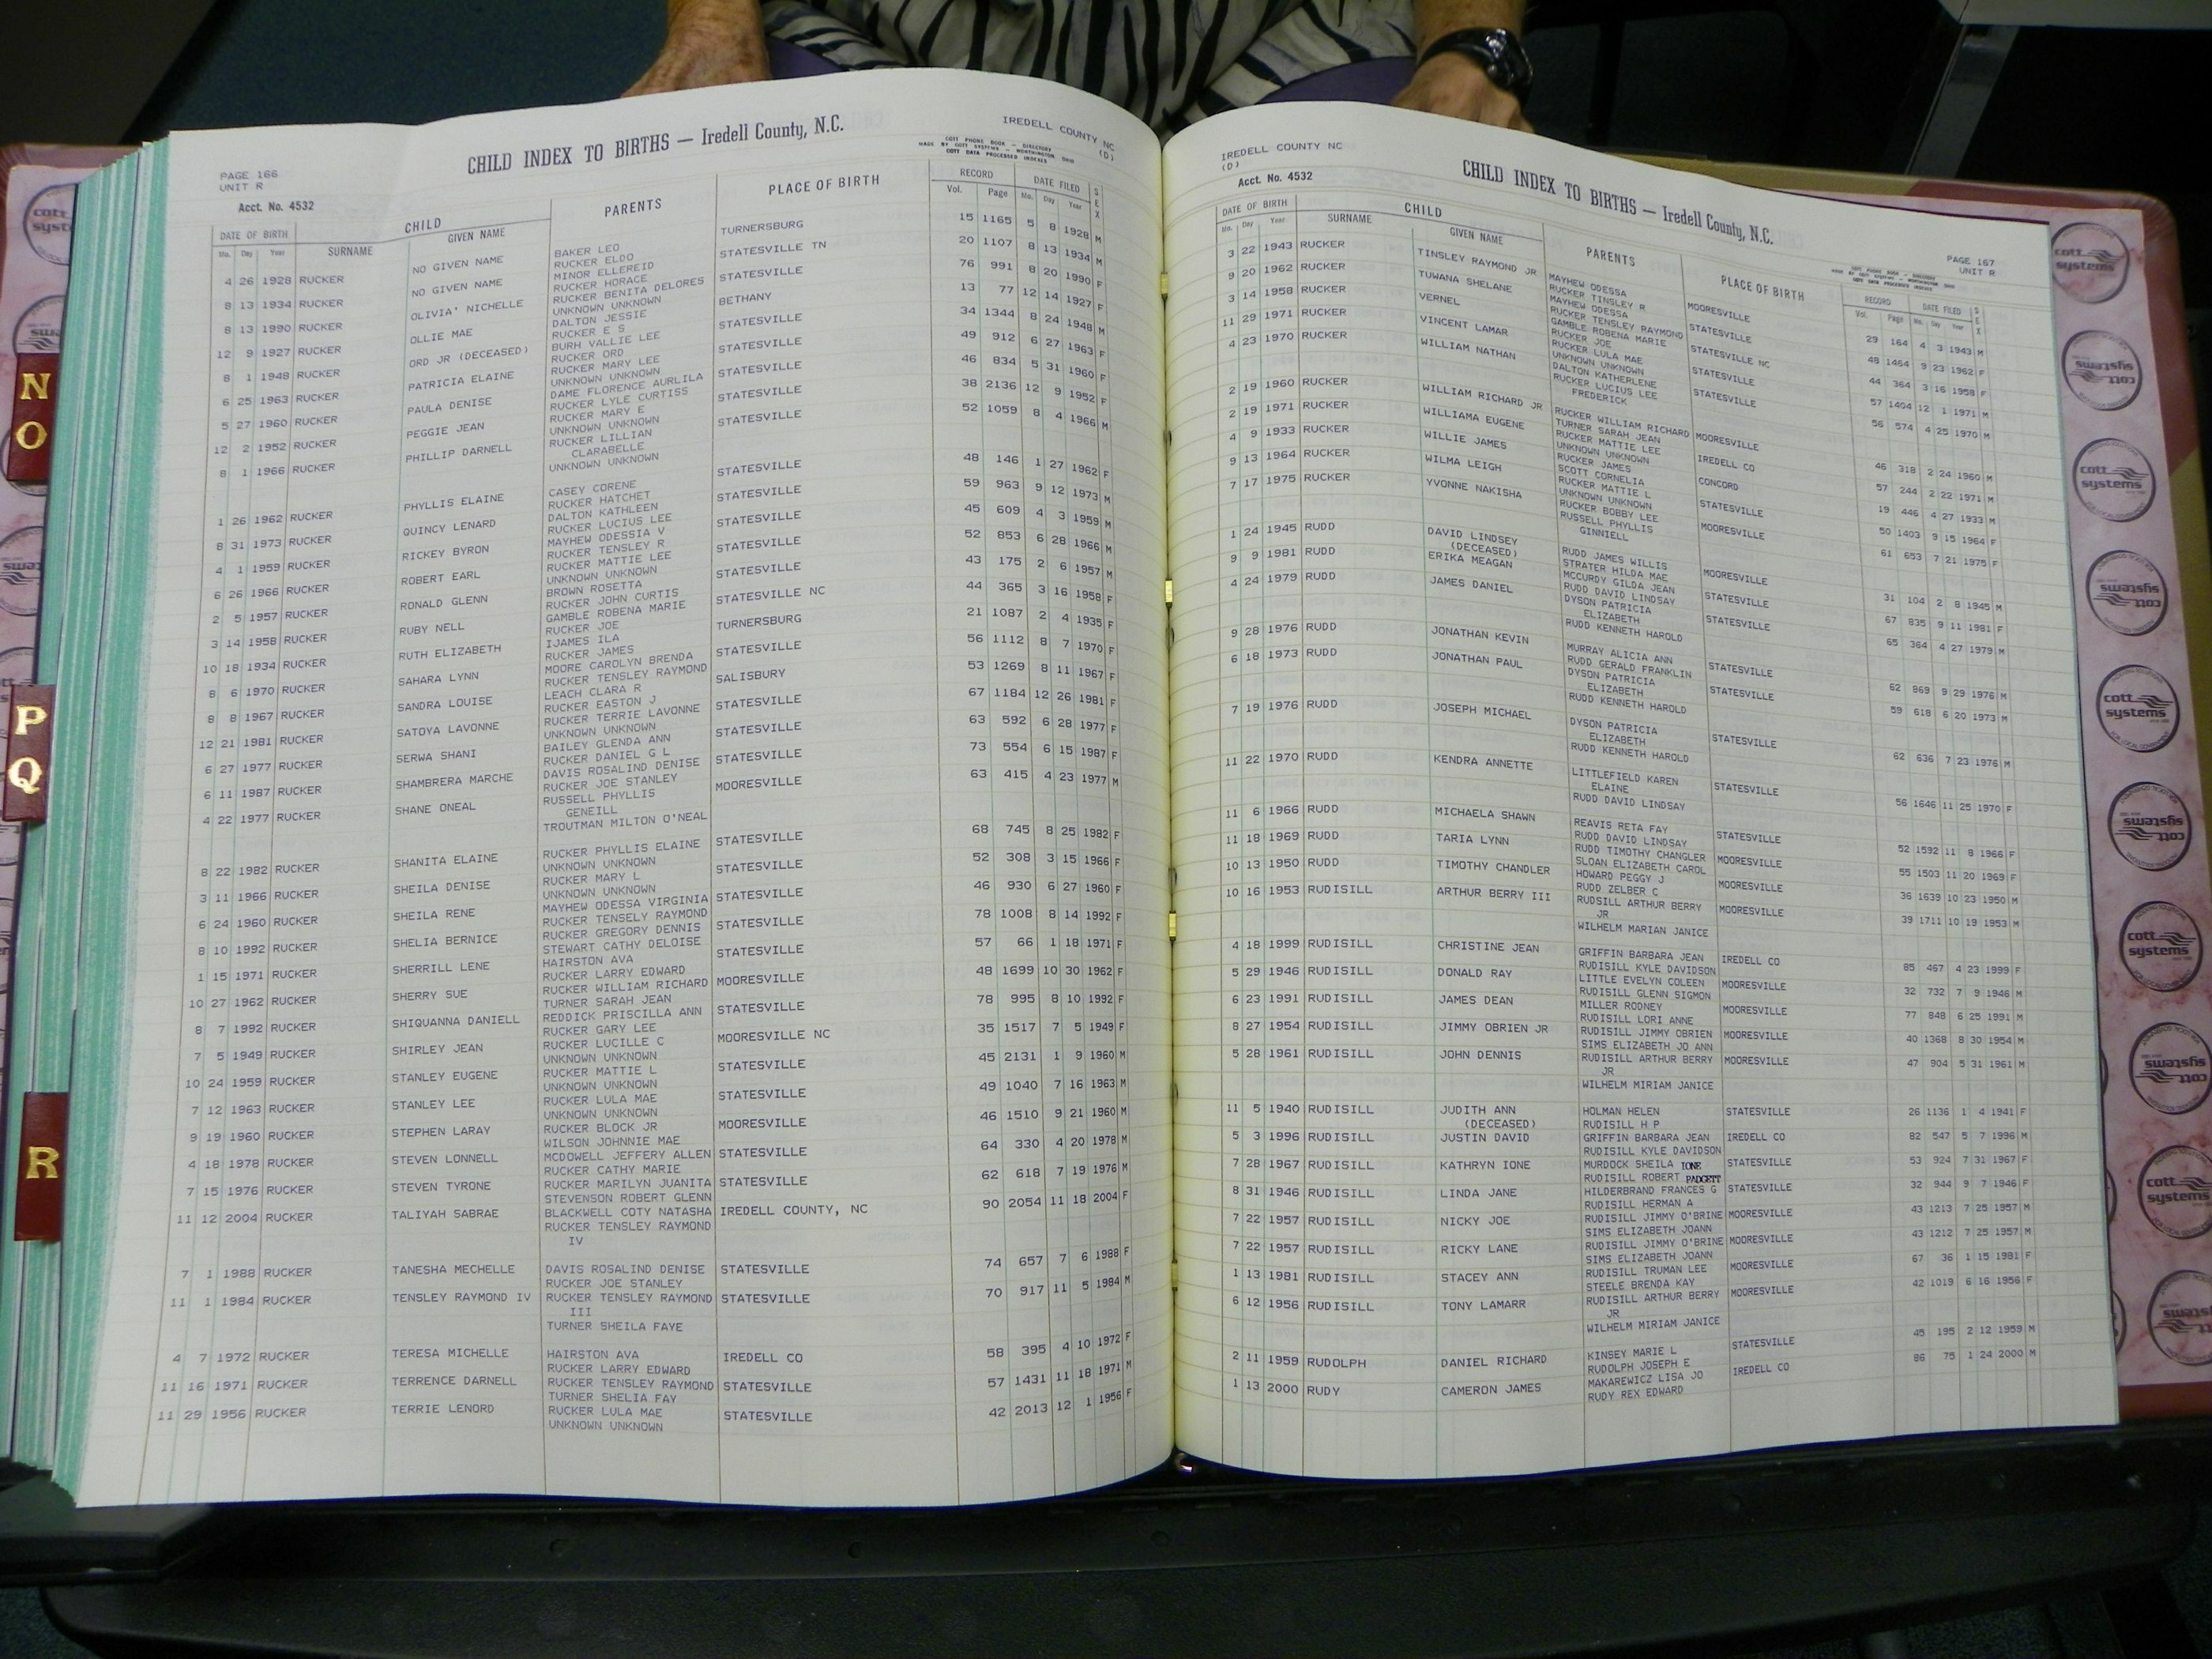 IREDELL COUNTY NC
(D)
CHILD INDEX TO BIRTHS — Iredell County, N.C.
COTT PHONE BOOK — DIRECTORY
MADE BY COTT SYSTEMS — WORTHINGTON OHIO
COTT DATA PROCESSED INDEXES
PAGE 166
UNIT R
Acct. No. 4532
DATE OF BIRTH CHILD PARENTS PLACE OF BIRTH RECORD DATE FILED SEX
Mo. Day Year SURNAME GIVEN NAME Vol. Page Mo. Day Year
4 26 1928 RUCKER NO GIVEN NAME BAKER LEO TURNERSBURG 15 1165 5 8 1928 M
RUCKER ELDO
8 13 1934 RUCKER NO GIVEN NAME MINOR ELLEREID STATESVILLE TN 20 1107 8 13 1934 M
RUCKER HORACE
8 13 1990 RUCKER OLIVIA' NICHELLE RUCKER BENITA DELORES STATESVILLE 76 991 8 20 1990 F
UNKNOWN UNKNOWN
12 9 1927 RUCKER OLLIE MAE DALTON JESSIE BETHANY 13 77 12 14 1927 F
RUCKER E S
8 1 1948 RUCKER ORD JR (DECEASED) BURH VALLIE LEE STATESVILLE 34 1344 8 24 1948 M
RUCKER ORD
6 25 1963 RUCKER PATRICIA ELAINE RUCKER MARY LEE STATESVILLE 49 912 6 27 1963 F
UNKNOWN UNKNOWN
5 27 1960 RUCKER PAULA DENISE DAME FLORENCE AURLILA STATESVILLE 46 834 5 31 1960 F
RUCKER LYLE CURTISS
12 2 1952 RUCKER PEGGIE JEAN RUCKER MARY E STATESVILLE 38 2136 12 9 1952 F
UNKNOWN UNKNOWN
8 1 1966 RUCKER PHILLIP DARNELL RUCKER LILLIAN STATESVILLE 52 1059 8 4 1966 M
CLARABELLE
UNKNOWN UNKNOWN
1 26 1962 RUCKER PHYLLIS ELAINE CASEY CORENE STATESVILLE 48 146 1 27 1962 F
RUCKER HATCHET
8 31 1973 RUCKER QUINCY LENARD DALTON KATHLEEN STATESVILLE 59 963 9 12 1973 M
RUCKER LUCIUS LEE
4 1 1959 RUCKER RICKEY BYRON MAYHEW ODESSIA V STATESVILLE 45 609 4 3 1959 M
RUCKER TENSLEY R
6 26 1966 RUCKER ROBERT EARL RUCKER MATTIE LEE STATESVILLE 52 853 6 28 1966 M
UNKNOWN UNKNOWN
2 5 1957 RUCKER RONALD GLENN BROWN ROSETTA STATESVILLE 43 175 2 6 1957 M
RUCKER JOHN CURTIS
3 14 1958 RUCKER RUBY NELL GAMBLE ROBENA MARIE STATESVILLE NC 44 365 3 16 1958 F
RUCKER JOE
10 18 1934 RUCKER RUTH ELIZABETH IJAMES ILA TURNERSBURG 21 1087 2 4 1935 F
RUCKER JAMES
8 6 1970 RUCKER SAHARA LYNN MOORE CAROLYN BRENDA STATESVILLE 56 1112 8 7 1970 F
RUCKER TENSLEY RAYMOND
8 8 1967 RUCKER SANDRA LOUISE LEACH CLARA R SALISBURY 53 1269 8 11 1967 F
RUCKER EASTON J
12 21 1981 RUCKER SATOYA LAVONNE RUCKER TERRIE LAVONNE STATESVILLE 67 1184 12 26 1981 F
UNKNOWN UNKNOWN
6 27 1977 RUCKER SERWA SHANI BAILEY GLENDA ANN STATESVILLE 63 592 6 28 1977 F
RUCKER DANIEL G L
6 11 1987 RUCKER SHAMBRERA MARCHE DAVIS ROSALIND DENISE STATESVILLE 73 554 6 15 1987 F
RUCKER JOE STANLEY
4 22 1977 RUCKER SHANE ONEAL RUSSELL PHYLLIS MOORESVILLE 63 415 4 23 1977 M
GENEILL
TROUTMAN MILTON O'NEAL
8 22 1982 RUCKER SHANITA ELAINE RUCKER PHYLLIS ELAINE STATESVILLE 68 745 8 25 1982 F
UNKNOWN UNKNOWN
3 11 1966 RUCKER SHEILA DENISE RUCKER MARY L STATESVILLE 52 308 3 15 1966 F
UNKNOWN UNKNOWN
6 24 1960 RUCKER SHEILA RENE MAYHEW ODESSA VIRGINIA STATESVILLE 46 930 6 27 1960 F
RUCKER TENSELY RAYMOND
8 10 1992 RUCKER SHELIA BERNICE RUCKER GREGORY DENNIS STATESVILLE 78 1008 8 14 1992 F
STEWART CATHY DELOISE
1 15 1971 RUCKER SHERRILL LENE HAIRSTON AVA STATESVILLE 57 66 1 18 1971 F
RUCKER LARRY EDWARD
10 27 1962 RUCKER SHERRY SUE RUCKER WILLIAM RICHARD MOORESVILLE 48 1699 10 30 1962 F
TURNER SARAH JEAN
8 7 1992 RUCKER SHIQUANNA DANIELL REDDICK PRISCILLA ANN STATESVILLE 78 995 8 10 1992 F
RUCKER GARY LEE
7 5 1949 RUCKER SHIRLEY JEAN RUCKER LUCILLE C MOORESVILLE NC 35 1517 7 5 1949 F
UNKNOWN UNKNOWN
10 24 1959 RUCKER STANLEY EUGENE RUCKER MATTIE L STATESVILLE 45 2131 1 9 1960 M
UNKNOWN UNKNOWN
7 12 1963 RUCKER STANLEY LEE RUCKER LULA MAE STATESVILLE 49 1040 7 16 1963 M
UNKNOWN UNKNOWN
9 19 1960 RUCKER STEPHEN LARAY RUCKER BLOCK JR MOORESVILLE 46 1510 9 21 1960 M
WILSON JOHNNIE MAE
4 18 1978 RUCKER STEVEN LONNELL MCDOWELL JEFFERY ALLEN STATESVILLE 64 330 4 20 1978 M
RUCKER CATHY MARIE
7 15 1976 RUCKER STEVEN TYRONE RUCKER MARILYN JUANITA STATESVILLE 62 618 7 19 1976 M
STEVENSON ROBERT GLENN
11 12 2004 RUCKER TALIYAH SABRAE BLACKWELL COTY NATASHA IREDELL COUNTY, NC 90 2054 11 18 2004 F
RUCKER TENSLEY RAYMOND
IV
7 1 1988 RUCKER TANESHA MECHELLE DAVIS ROSALIND DENISE STATESVILLE 74 657 7 6 1988 F
RUCKER JOE STANLEY
11 1 1984 RUCKER TENSLEY RAYMOND IV RUCKER TENSLEY RAYMOND STATESVILLE 70 917 11 5 1984 M
III
TURNER SHEILA FAYE
4 7 1972 RUCKER TERESA MICHELLE HAIRSTON AVA IREDELL CO 58 395 4 10 1972 F
RUCKER LARRY EDWARD
11 16 1971 RUCKER TERRENCE DARNELL RUCKER TENSLEY RAYMOND STATESVILLE 57 1431 11 18 1971 M
TURNER SHELIA FAY
11 29 1956 RUCKER TERRIE LENORD RUCKER LULA MAE STATESVILLE 42 2013 12 1 1956 F
UNKNOWN UNKNOWN
IREDELL COUNTY NC
(D)
Acct. No. 4532
CHILD INDEX TO BIRTHS — Iredell County, N.C.
COTT PHONE BOOK — DIRECTORY
MADE BY COTT SYSTEMS — WORTHINGTON OHIO
COTT DATA PROCESSED INDEXES
PAGE 167
UNIT R
DATE OF BIRTH CHILD PARENTS PLACE OF BIRTH RECORD DATE FILED SEX
Mo. Day Year SURNAME GIVEN NAME Vol. Page Mo. Day Year
3 22 1943 RUCKER TINSLEY RAYMOND JR MAYHEW ODESSA MOORESVILLE 29 164 4 3 1943 M
RUCKER TINSLEY R
9 20 1962 RUCKER TUWANA SHELANE MAYHEW ODESSA STATESVILLE 48 1464 9 23 1962 F
RUCKER TENSLEY RAYMOND
3 14 1958 RUCKER VERNEL GAMBLE ROBENA MARIE STATESVILLE NC 44 364 3 16 1958 F
RUCKER JOE
11 29 1971 RUCKER VINCENT LAMAR RUCKER LULA MAE STATESVILLE 57 1404 12 1 1971 M
UNKNOWN UNKNOWN
4 23 1970 RUCKER WILLIAM NATHAN DALTON KATHERLENE STATESVILLE 56 574 4 25 1970 M
RUCKER LUCIUS LEE
FREDERICK
2 19 1960 RUCKER WILLIAM RICHARD JR RUCKER WILLIAM RICHARD MOORESVILLE 46 318 2 24 1960 M
TURNER SARAH JEAN
2 19 1971 RUCKER WILLIAMA EUGENE RUCKER MATTIE LEE IREDELL CO 57 244 2 22 1971 M
UNKNOWN UNKNOWN
4 9 1933 RUCKER WILLIE JAMES RUCKER JAMES CONCORD 19 446 4 27 1933 M
SCOTT CORNELIA
9 13 1964 RUCKER WILMA LEIGH RUCKER MATTIE L STATESVILLE 50 1403 9 15 1964 F
UNKNOWN UNKNOWN
7 17 1975 RUCKER YVONNE NAKISHA RUCKER BOBBY LEE MOORESVILLE 61 653 7 21 1975 F
RUSSELL PHYLLIS
GINNIELL
1 24 1945 RUDD DAVID LINDSEY RUDD JAMES WILLIS MOORESVILLE 31 104 2 8 1945 M
(DECEASED) STRATER HILDA MAE
9 9 1981 RUDD ERIKA MEAGAN MCCURDY GILDA JEAN STATESVILLE 67 835 9 11 1981 F
RUDD DAVID LINDSAY
4 24 1979 RUDD JAMES DANIEL DYSON PATRICIA STATESVILLE 65 364 4 27 1979 M
ELIZABETH
RUDD KENNETH HAROLD
9 28 1976 RUDD JONATHAN KEVIN MURRAY ALICIA ANN STATESVILLE 62 869 9 29 1976 M
RUDD GERALD FRANKLIN
6 18 1973 RUDD JONATHAN PAUL DYSON PATRICIA STATESVILLE 59 618 6 20 1973 M
ELIZABETH
RUDD KENNETH HAROLD
7 19 1976 RUDD JOSEPH MICHAEL DYSON PATRICIA STATESVILLE 62 636 7 23 1976 M
ELIZABETH
RUDD KENNETH HAROLD
11 22 1970 RUDD KENDRA ANNETTE LITTLEFIELD KAREN STATESVILLE 56 1646 11 25 1970 F
ELAINE
RUDD DAVID LINDSAY
11 6 1966 RUDD MICHAELA SHAWN REAVIS RETA FAY STATESVILLE 52 1592 11 8 1966 F
RUDD DAVID LINDSAY
11 18 1969 RUDD TARIA LYNN RUDD TIMOTHY CHANGLER MOORESVILLE 55 1503 11 20 1969 F
SLOAN ELIZABETH CAROL
10 13 1950 RUDD TIMOTHY CHANDLER HOWARD PEGGY J MOORESVILLE 36 1639 10 23 1950 M
RUDD ZELBER C
10 16 1953 RUDISILL ARTHUR BERRY III RUDSILL ARTHUR BERRY MOORESVILLE 39 1711 10 19 1953 M
JR
WILHELM MARIAN JANICE
4 18 1999 RUDISILL CHRISTINE JEAN GRIFFIN BARBARA JEAN IREDELL CO 85 467 4 23 1999 F
RUDISILL KYLE DAVIDSON
5 29 1946 RUDISILL DONALD RAY LITTLE EVELYN COLEEN MOORESVILLE 32 732 7 9 1946 M
RUDISILL GLENN SIGMON
6 23 1991 RUDISILL JAMES DEAN MILLER RODNEY MOORESVILLE 77 848 6 25 1991 M
RUDISILL LORI ANNE
8 27 1954 RUDISILL JIMMY OBRIEN JR RUDISILL JIMMY OBRIEN MOORESVILLE 40 1368 8 30 1954 M
SIMS ELIZABETH JO ANN
5 28 1961 RUDISILL JOHN DENNIS RUDISILL ARTHUR BERRY MOORESVILLE 47 904 5 31 1961 M
JR
WILHELM MIRIAM JANICE
11 5 1940 RUDISILL JUDITH ANN HOLMAN HELEN STATESVILLE 26 1136 1 4 1941 F
(DECEASED) RUDISILL H P
5 3 1996 RUDISILL JUSTIN DAVID GRIFFIN BARBARA JEAN IREDELL CO 82 547 5 7 1996 M
RUDISILL KYLE DAVIDSON
7 28 1967 RUDISILL KATHRYN IONE MURDOCK SHEILA IONE STATESVILLE 53 924 7 31 1967 F
RUDISILL ROBERT PADGETT
8 31 1946 RUDISILL LINDA JANE HILDERBRAND FRANCES G STATESVILLE 32 944 9 7 1946 F
RUDISILL HERMAN A
7 22 1957 RUDISILL NICKY JOE RUDISILL JIMMY O'BRINE MOORESVILLE 43 1213 7 25 1957 M
SIMS ELIZABETH JOANN
7 22 1957 RUDISILL RICKY LANE RUDISILL JIMMY O'BRINE MOORESVILLE 43 1212 7 25 1957 M
SIMS ELIZABETH JOANN
1 13 1981 RUDISILL STACEY ANN RUDISILL TRUMAN LEE MOORESVILLE 67 36 1 15 1981 F
STEELE BRENDA KAY
6 12 1956 RUDISILL TONY LAMARR RUDISILL ARTHUR BERRY MOORESVILLE 42 1019 6 16 1956 F
JR
WILHELM MIRIAM JANICE
2 11 1959 RUDOLPH DANIEL RICHARD KINSEY MARIE L STATESVILLE 45 195 2 12 1959 M
RUDOLPH JOSEPH E
1 13 2000 RUDY CAMERON JAMES MAKAREWICZ LISA JO IREDELL CO 86 75 1 24 2000 M
RUDY REX EDWARD
N
O
P
Q
R
cott
systems
cott
systems
cott
systems
cott
systems
cott
systems
cott
systems
cott
systems
cott
systems
cott
systems
cott
systems